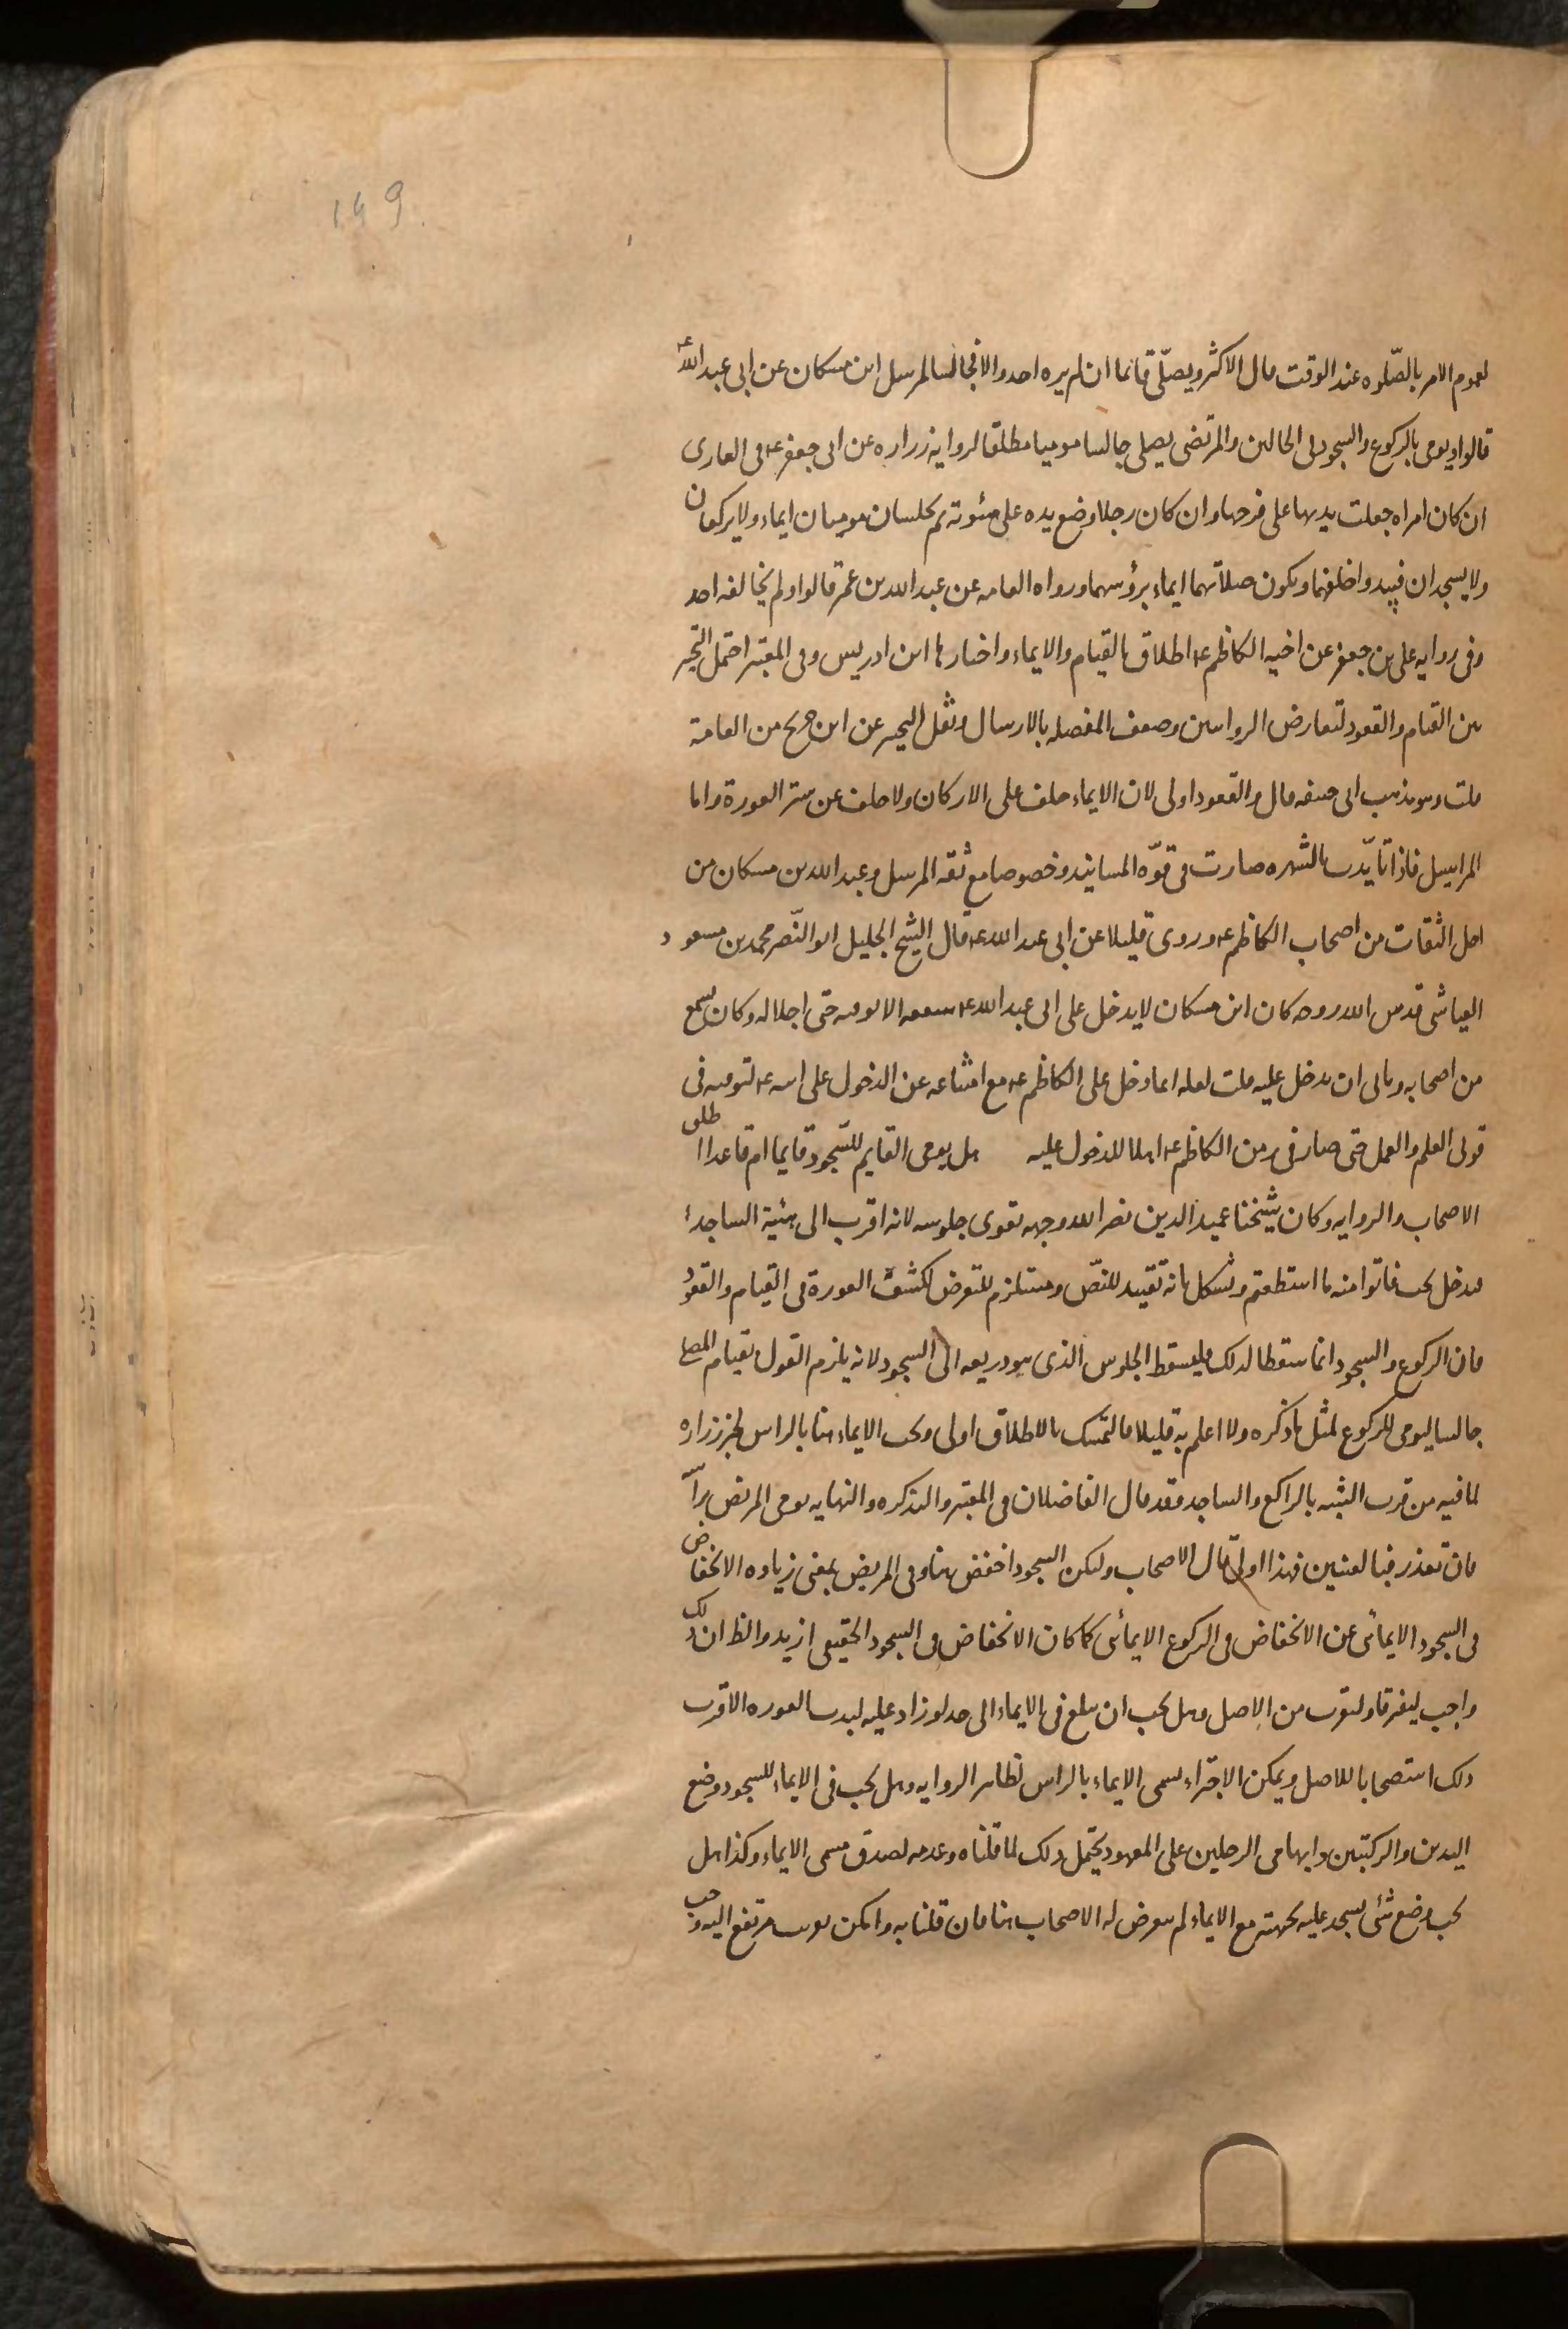 149
لعموم الامر بالصّلوه عند الوقت قال الاكثر ويصلّى قائما ان لم يره احد والا فجالسا لمرسل ابن مسكان عن ابى عبد اللهؑ
قالوا ويومى بالركوع والسجود فى الحالين والمرتضى يصلى جالسا موميا مطلقا لروايه زراره عن ابى جعفر ع فى العارى
ان كان امراه جعلت يديها على فرجها وان كان رجلا وضع يده على سوئته ثم يجلسان موميان ايماء ولا يركعان
ولا يسجدان فيبدو اخلفهما ويكون صلاتهما ايماء برؤسهما ورواه العامه عن عبد الله بن عمر قالوا ولم يخالفه احد
وفى روايه على بن جعفر عن اخيه الكاظم ع اطلاق القيام والايماء واختارها ابن ادريس وفى المعتبر احتمل التخير
بين القيام والقعود لتعارض الروايتين وضعف المفصله بالارسال ونقل التخير عن ابن جريح من العامة
قلت وهو مذهب ابى حنيفه قال والقعود اولى لان الايماء خلف على الاركان ولا خلف عن ستر العورة واما
المراسيل فاذا تأيّدت بالشهره صارت فى قوّه المسانيد وخصوصا مع ثقه المرسل وعبد الله بن مسكان من
اجل الثقات من اصحاب الكاظم ع وروى قليلا عن ابى عبد الله ع قال الشيخ الجليل ابو النّصر محمد بن مسعود
العياشى قدس الله روحه كان ابن مسكان لا يدخل على ابى عبد الله ع شفقه الا يوفيه حق اجلاله وكان يسمع
من اصحابه ويابى ان يدخل عليه قلت لعله انما دخل على الكاظم ع مع امتناعه عن الدخول على ابيه ع لترقيه فى
قوتى العلم والعمل حتى صار فى زمن الكاظم ع اهلا للدخول عليه هل يومى القايم للسّجود قايما ام قاعدا اطلق
الاصحاب والروايه وكان شيخنا عميد الدين نضر الله وجهه يقوى جلوسه لانه اقرب الى هيئة الساجد
فيدخل تحت فاتوا منه ما استطعتم ويشكل بانه تقييد للنصّ ومستلزم للتعرض لكشف العورة فى القيام والقعود
فان الركوع والسجود انما سقطا لذلك فليسقط الجلوس الذى هو ذريعه الى السجود لانه يلزم القول بقيام المصلى
جالسا ليومى للركوع لمثل ما ذكره ولا اعلم به قايلا فالتمسك بالاطلاق اولى ويجب الايماء هنا بالراس لخبر زراره
لما فيه من قرب الشبه بالراكع والساجد وقد قال الفاضلان فى المعتبر والتذكره والنهايه يومى المريض برأسه
فان تعذر فبالعينين فهذا اولى قال الاصحاب وليكن السجود اخفض هنا وفى المريض بمعنى زياده الانخفاض
فى السجود الايمائى عن الانخفاض فى الركوع الايمائى كما كان الانخفاض فى السجود الحقيقى ازيد والظ ان ذلك
واجب ليفرقا وليقرب من الاصل وهل يجب ان يبلغ فى الايماء الى حد لو زاد عليه لبدت العوره الاقرب
ذلك استصحابا للاصل ويمكن الاجتزاء بمسمى الايماء بالراس لظاهر الروايه وهل يجب فى الايماء للسجود وضع
اليدين والركبتين وابهامى الرجلين على المعهود يحتمل ذلك لما قلناه وعدمه لصدق مسمى الايماء وكذا هل
يجب وضع شئ يسجد عليه بجبهته مع الايماء لم يتعرض له الاصحاب هنا فان قلنا به وامكن تقريب مرتفع اليه وجب